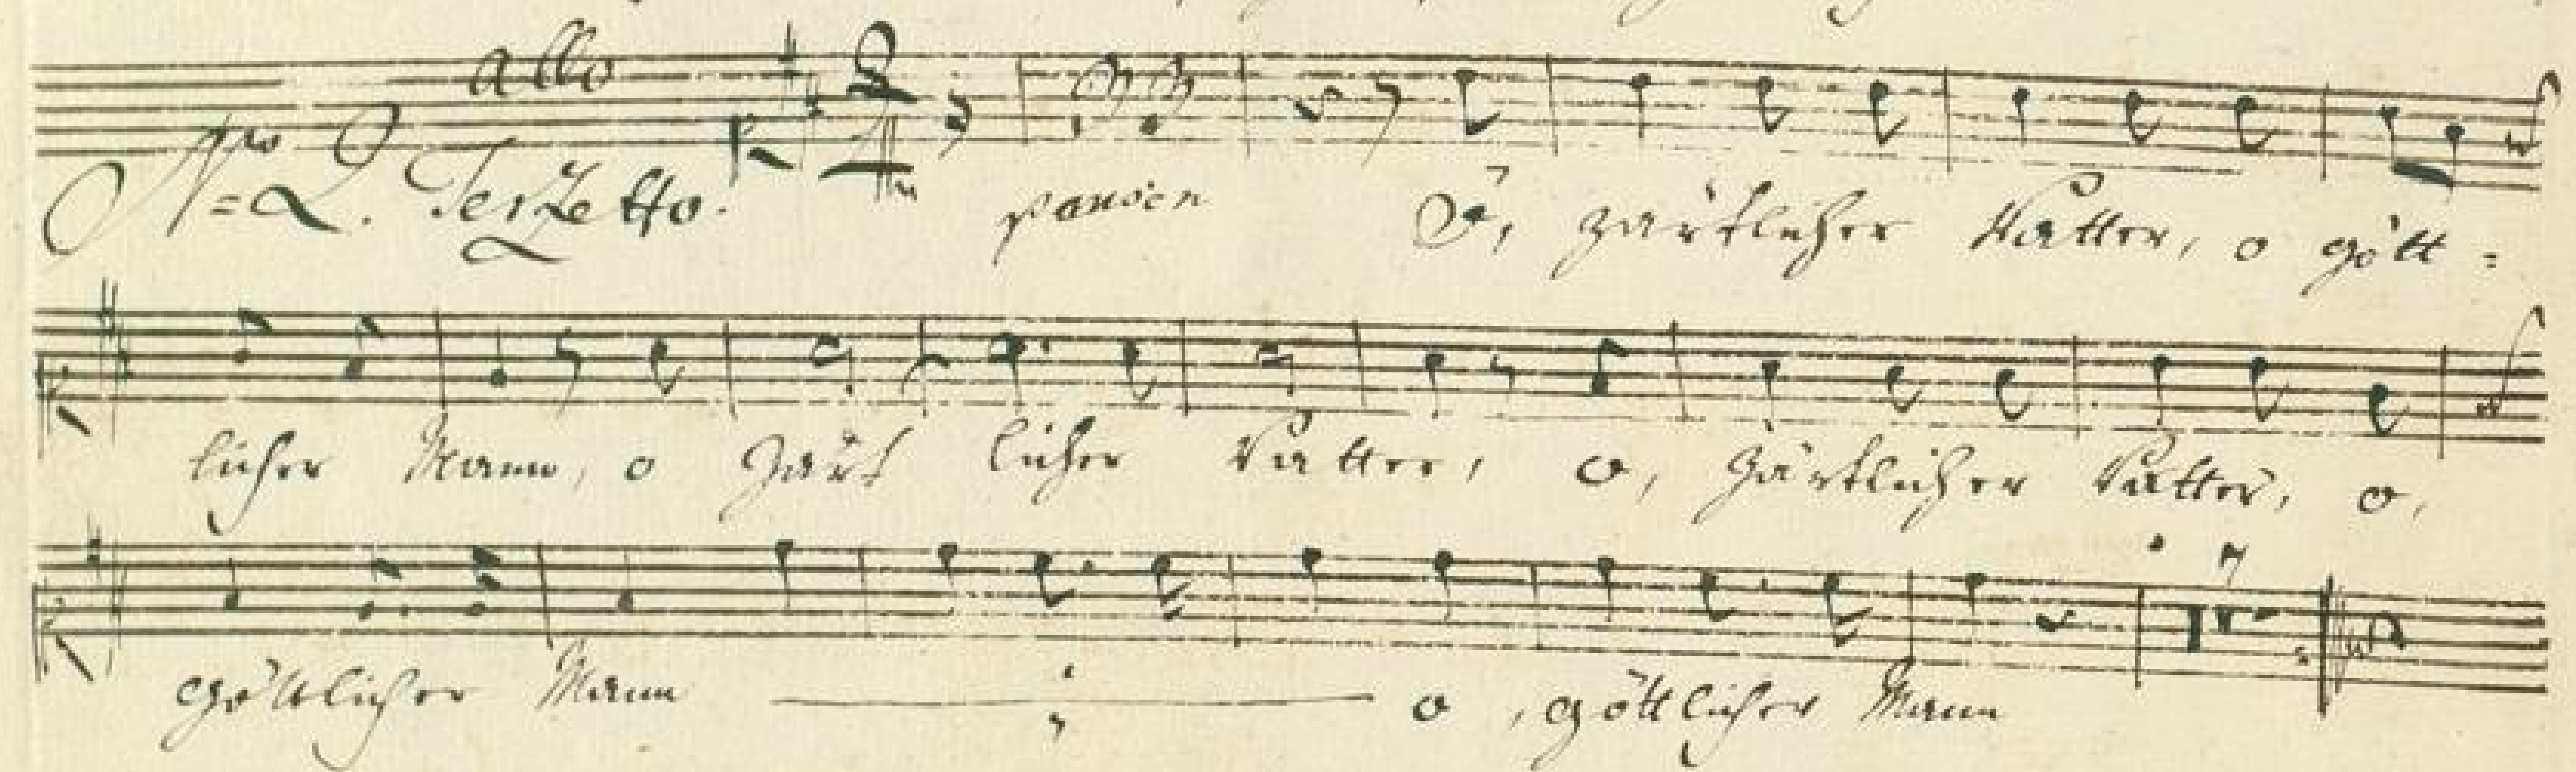 allo
No 2. Terzetto. pausen O, zärtlicher Vatter, o gött=
licher Mann, o zärt licher Vatter, o, zärtlicher Vatter, o,
7
göttlicher Mann o, göttlicher Mann